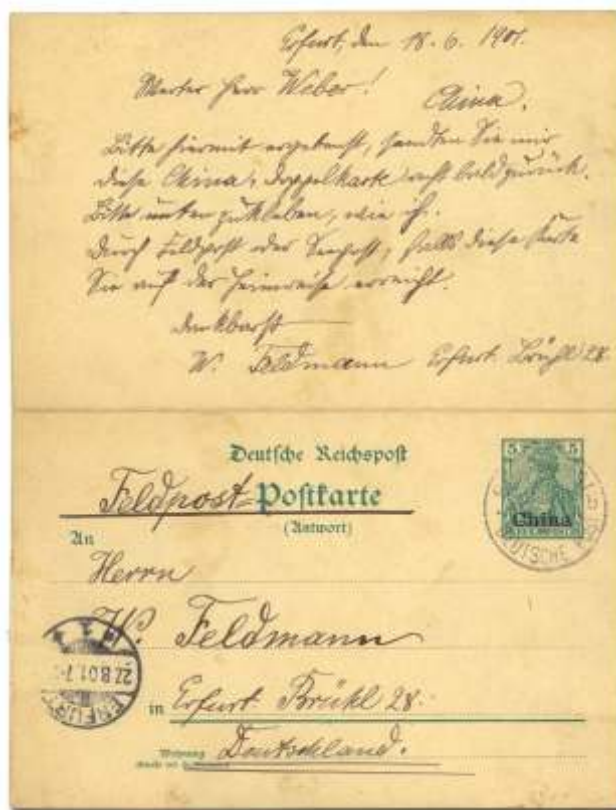 Erfurt, den 18.6.1901.
Werter Herr Weber!
China.
Bitte hiermit ergebenst, senden Sie mir
diese China-Doppelkarte recht bald zurück.
Bitte unten zukleben, wie ich.
Durch Feldpost oder Seepost, falls diese Karte
Sie auf der Heimreise erreicht.
dankbarst
W. Feldmann Erfurt Brühl 28.
Deutsche Reichspost
Feldpost-Postkarte
(Antwort)
5 5
China
DEUTSCHE
An
Herrn
W. Feldmann
in Erfurt Brühl 28.
Wohnung
Deutschland.
ERFURT
27.8.01.7-